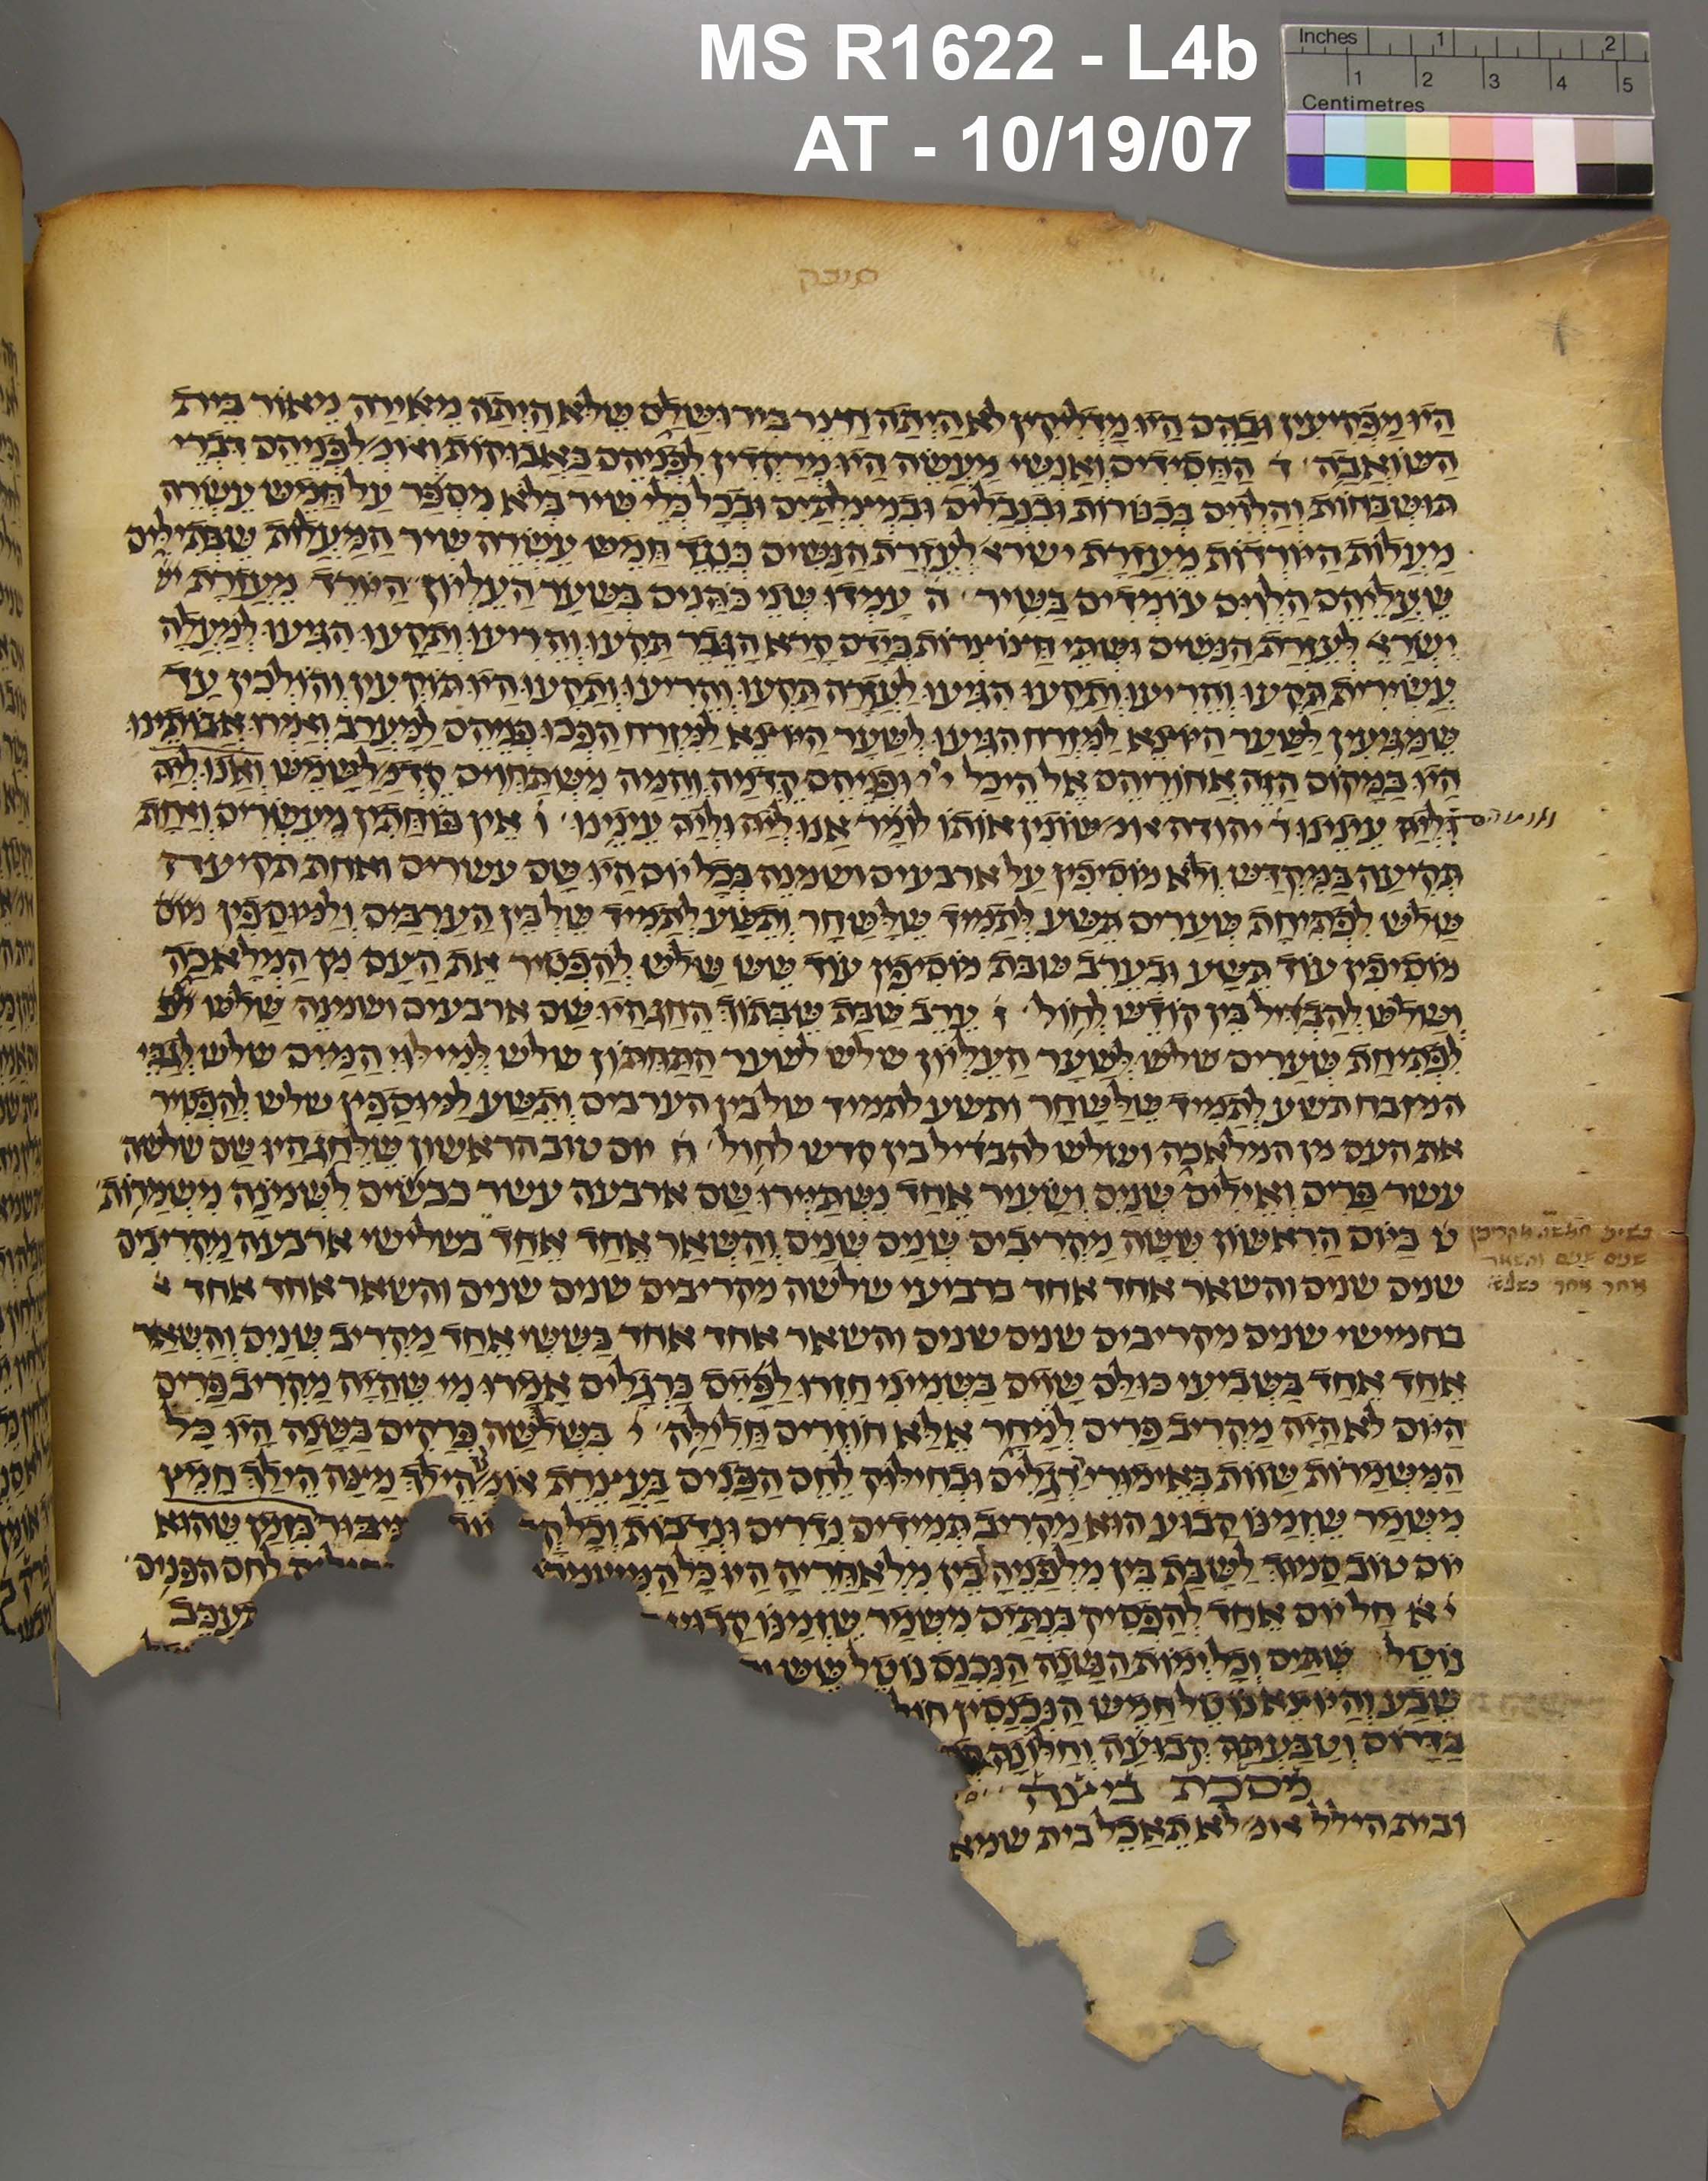 MS R1622 - L4b
AT - 10/19/07
Inches 1 2
1 2 3 4 5
Centimetres
היו מבקיעין ובהם היו מדליקין לא היתה חצר בירושלם שלא היתה מאירה מאור בית
השואבה ד החסידים ואנשי מעשה היו מרקדין לפניהם באבוקות ואומ׳ לפניהם דברי
תושבחות והלוים בכנורות ובנבלים ובמצלתים ובכל כלי שיר בלא מספר על חמש עשרה
מעלות היורדות מעזרת ישרא׳ לעזרת הנשים כנגד חמש עשרה שיר המעלות שבתילים
שעליהם הלוים עומדים בשיר ה עמדו שני כהנים בשער העליון היורד מעזרת
ישרא׳ לעזרת הנשים ושתי חצוצרות בידם קרא הגבר תקעו והריעו ותקעו הגיעו למעלה
עשירית תקעו והריעו ותקעו הגיעו לעזרה תקעו והריעו ותקעו היו תוקעין והולכין עד
שמגיעין לשער היוצא למזרח הגיעו לשער היוצא למזרח הפכו פניהם למערב ואמרו אבותינו
היו במקום הזה אחוריהם אל היכל יי ופניהם קדמה והמה משתחוים קדמ׳ לשמש ואנו ליה
וליה עינינו ר יהודה אומ׳ שונין אותו לומר אנו ליה וליה עינינו ו אין פוחתין מעשרים ואחת
תקיעה במקדש ולא מוסיפין על ארבעים ושמנה בכל יום היו שם עשרים ואחת תקיעה
שלש לפתיחת שערים תשע לתמיד שלשחר ותשע לתמיד שלבין הערבים ולמוספין
מוסיפין עוד תשע ובערב שבת מוסיפין עוד שש שלש להפטיר את העם מן המלאכה
ושלש להבדיל בין קודש לחול ז ערב שבת שבתוך החג היו שם ארבעים ושמנה שלש
לפתיחת שערים שלש לשער העליון שלש לשער התחתון שלש למילוי המים שלש לגבי
המזבח תשע לתמיד שלשחר ותשע לתמיד שלבין הערבים ותשע למוספין שלש להפטיר
את העם מן המלאכה ושלש להבדיל בין קדש לחול ח יום טוב הראשון שלחג היו שם שלשה
עשר פרים ואילים שנים ושעיר אחד נשתיירו שם ארבעה עשר כבשים לשמונה משמרות
ט ביום הראשון ששה מקריבים שנים שנים והשאר אחד אחד בשלישי ארבעה מקריבים
בשיני חמשה מקריבין
שנים שנים והשאר
אחד אחד
שנים שנים והשאר אחד אחד ברביעי שלשה מקריבים שנים שנים והשאר אחד אחד
בחמישי שנים מקריבים שנים שנים והשאר אחד אחד בששי אחד מקריב שנים והשאר
אחד אחד בשביעי כולם שוים בשמיני חזרו לפייס כרגלים אמרו מי שהיה מקריב פרים
היום לא היה מקריב פרים למחר אלא חוזרים חלילה י בשלשה פרקים בשנה היו כל
המשמרות שוות באימורי רגלים ובחילוק לחם הפנים בעצרת אומ׳ הילך מצה הילך חמץ
משמר שזמנו קבוע הוא מקריב תמידים נדרים ונדבות וכל
יום טוב סמוך לשבת בין מלפניה בין מלאחריה היו כל המשמרות לחם הפנים
יא חל יום אחד להפסיק בנתים משמר שזמנו קבוע
נוטל שתים וכל ימות השנה הנכנס נוטל שש
שבע והיוצא נוטל חמש הנכנסין
בדרום וטבעתה קבועה וחלונה
מסכת ביצה
ובית הילל אומ׳ לא תאכל בית שמא